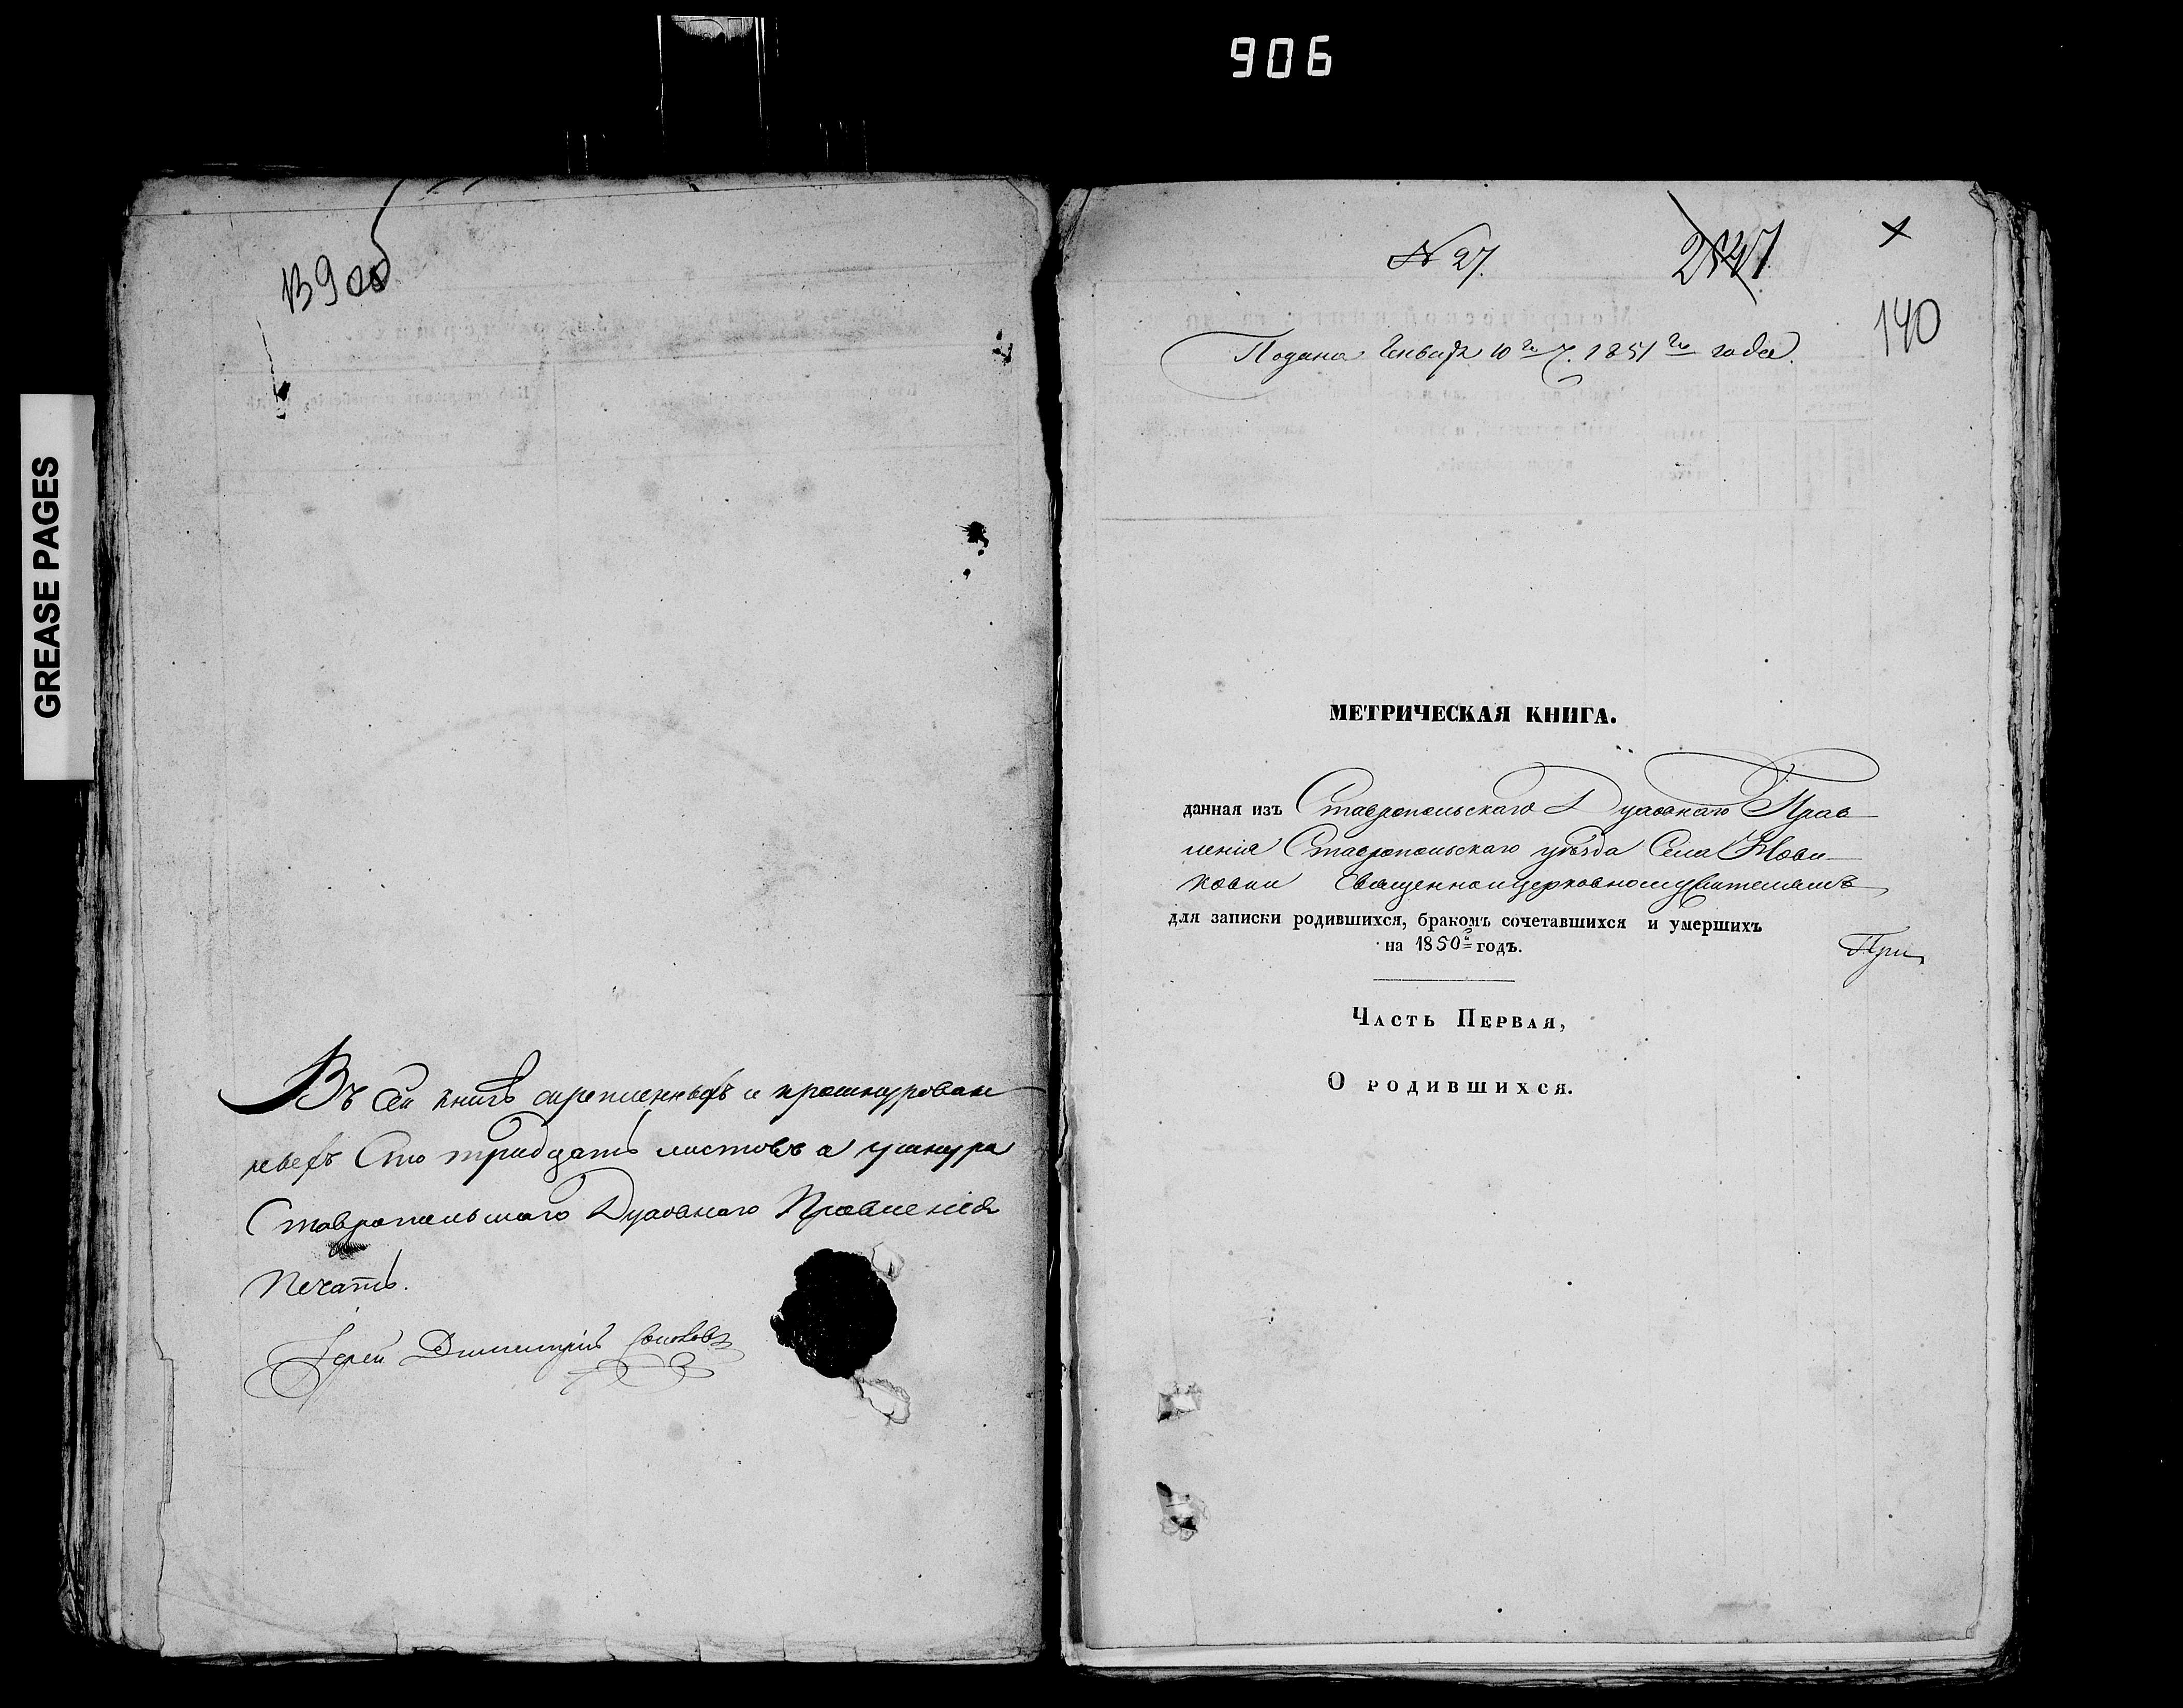 906
GREASE PAGES
Въ сей книгѣ скрепленныхъ и прошнурован
ныхъ Сто тридцать листовъ а у шнура
Ставропольскаго Духовнаго Правленія
Печать.
Іерей Димитрій
№ 27.
140
Подана Генваря 10го ч. 1851го года.
МЕТРИЧЕСКАЯ КНИГА.
данная изъ Ставропольскаго Духовнаго Прав
ленія Ставропольскаго уѣзда Села Нови
ковки Священноцерковнослужителямъ
для записки родившихся, бракомъ сочетавшихся и умершихъ
на 1850й годъ.
При
Часть Первая,
О родившихся.